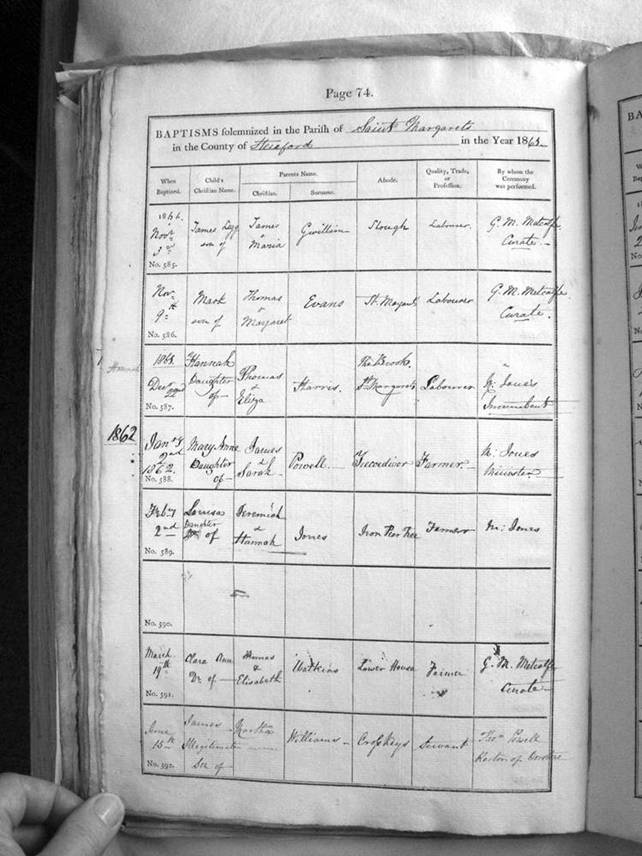 Page 74.
BAPTISMS solemnized in the Parish of Saint Margarets
in the County of Hereford in the Year 186
When Baptized. Child's Christian Name. Parents Name. Christian. Surname. Abode. Quality, Trade, or Profession. By whom the Ceremony was performed.
1861 Novr 3rd James son of James & Maria Gwilliam Slough Labourer. G. M. Metcalfe Curate
No. 585.
Novr 9th Mark son of Thomas & Margaret Evans St. Margarets Labourer G. M. Metcalfe Curate.
No. 586.
Hannah
1861 Decr 22nd Hannah Daughter of Thomas & Eliza Harris. The Brook. St Margarets Labourer M: Jones Incumbent
No. 587.
1862
Jany 2nd 1862. Mary Anne Daughter of James & Sarah Powell Trecediver Farmer M: Jones Minister
No. 588.
Feby 2nd Louisa Daughter of Jeremiah & Hannah Jones Iron Pear Tree Farmer M: Jones
No. 589.
No. 590.
March 19th Clara Ann Dr of Thomas & Elizabeth Watkins Lower House Farmer G. M. Metcalfe Curate
No. 591.
June 15th James Illegitimate Son of Martha Williams Crosskeys Servant Thos Powell
No. 592.